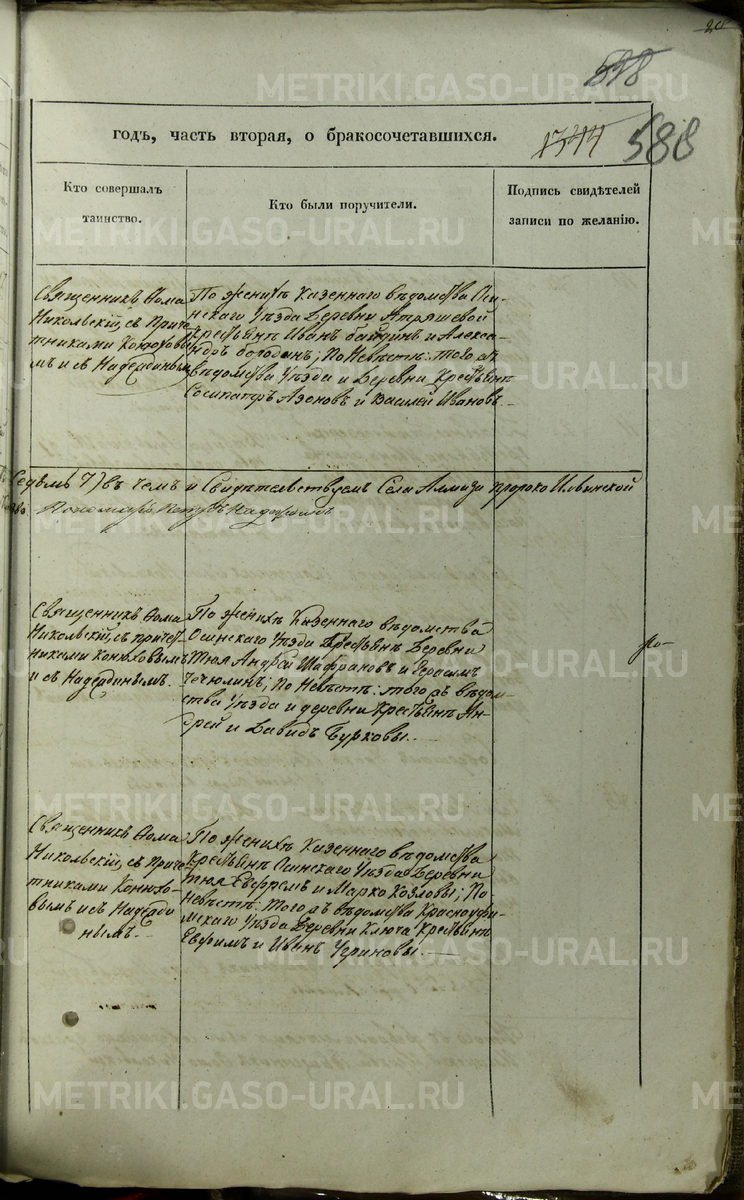 598
годъ, часть вторая, о бракосочетавшихся.
1344
588
Кто совершалъ
таинство.
Кто были поручители.
Подпись свидѣтелей
записи по желанію.
Священникъ Ѳома
Никольскій, съ приче-
тниками Конюховы-
мъ и съ Надеждинымъ
По женихѣ Казеннаго вѣдомства Оси-
нскаго Уѣзда Деревни Атряшевой
Крестьяне Иванъ и Алекса-
ндръ; По Невѣстѣ: того жъ
вѣдомства Уѣзда и Деревни Крестьяне
Сосипатръ Азоновъ и Василей Ивановъ.
Седьмь 7) въ чемъ и Свидѣтельствуемъ Села Алмаза пророко Ильинской
Пономарь Петръ
Священникъ Ѳома
Никольскій, съ причет-
никами Конюховымъ
и съ Надеждинымъ.
По женихѣ Казеннаго вѣдомства
Осинскаго Уѣзда Крестьяне Деревни
Тюя Андрей Шафрановъ и Герасимъ
Чечюлинъ; По Невѣстѣ: того жъ вѣдом-
ства Уѣзда и деревни Крестьяне Ан-
дрей и Давидъ Бурковы.
Священникъ Ѳома
Никольскій, съ приче-
тниками Конюхо-
вымъ и съ Надежди-
нымъ.
По женихѣ Казеннаго вѣдомства
Крестьяне Осинскаго Уѣзда Деревни
Тюя Евфремъ и Марко Козловы; По
Невѣстѣ: того жъ вѣдомства Красноуфи-
мскаго Уѣзда Деревни Ключа Крестьяне
Ефимъ и Иванъ Чериновы.
METRIKI.GASO-URAL.RU